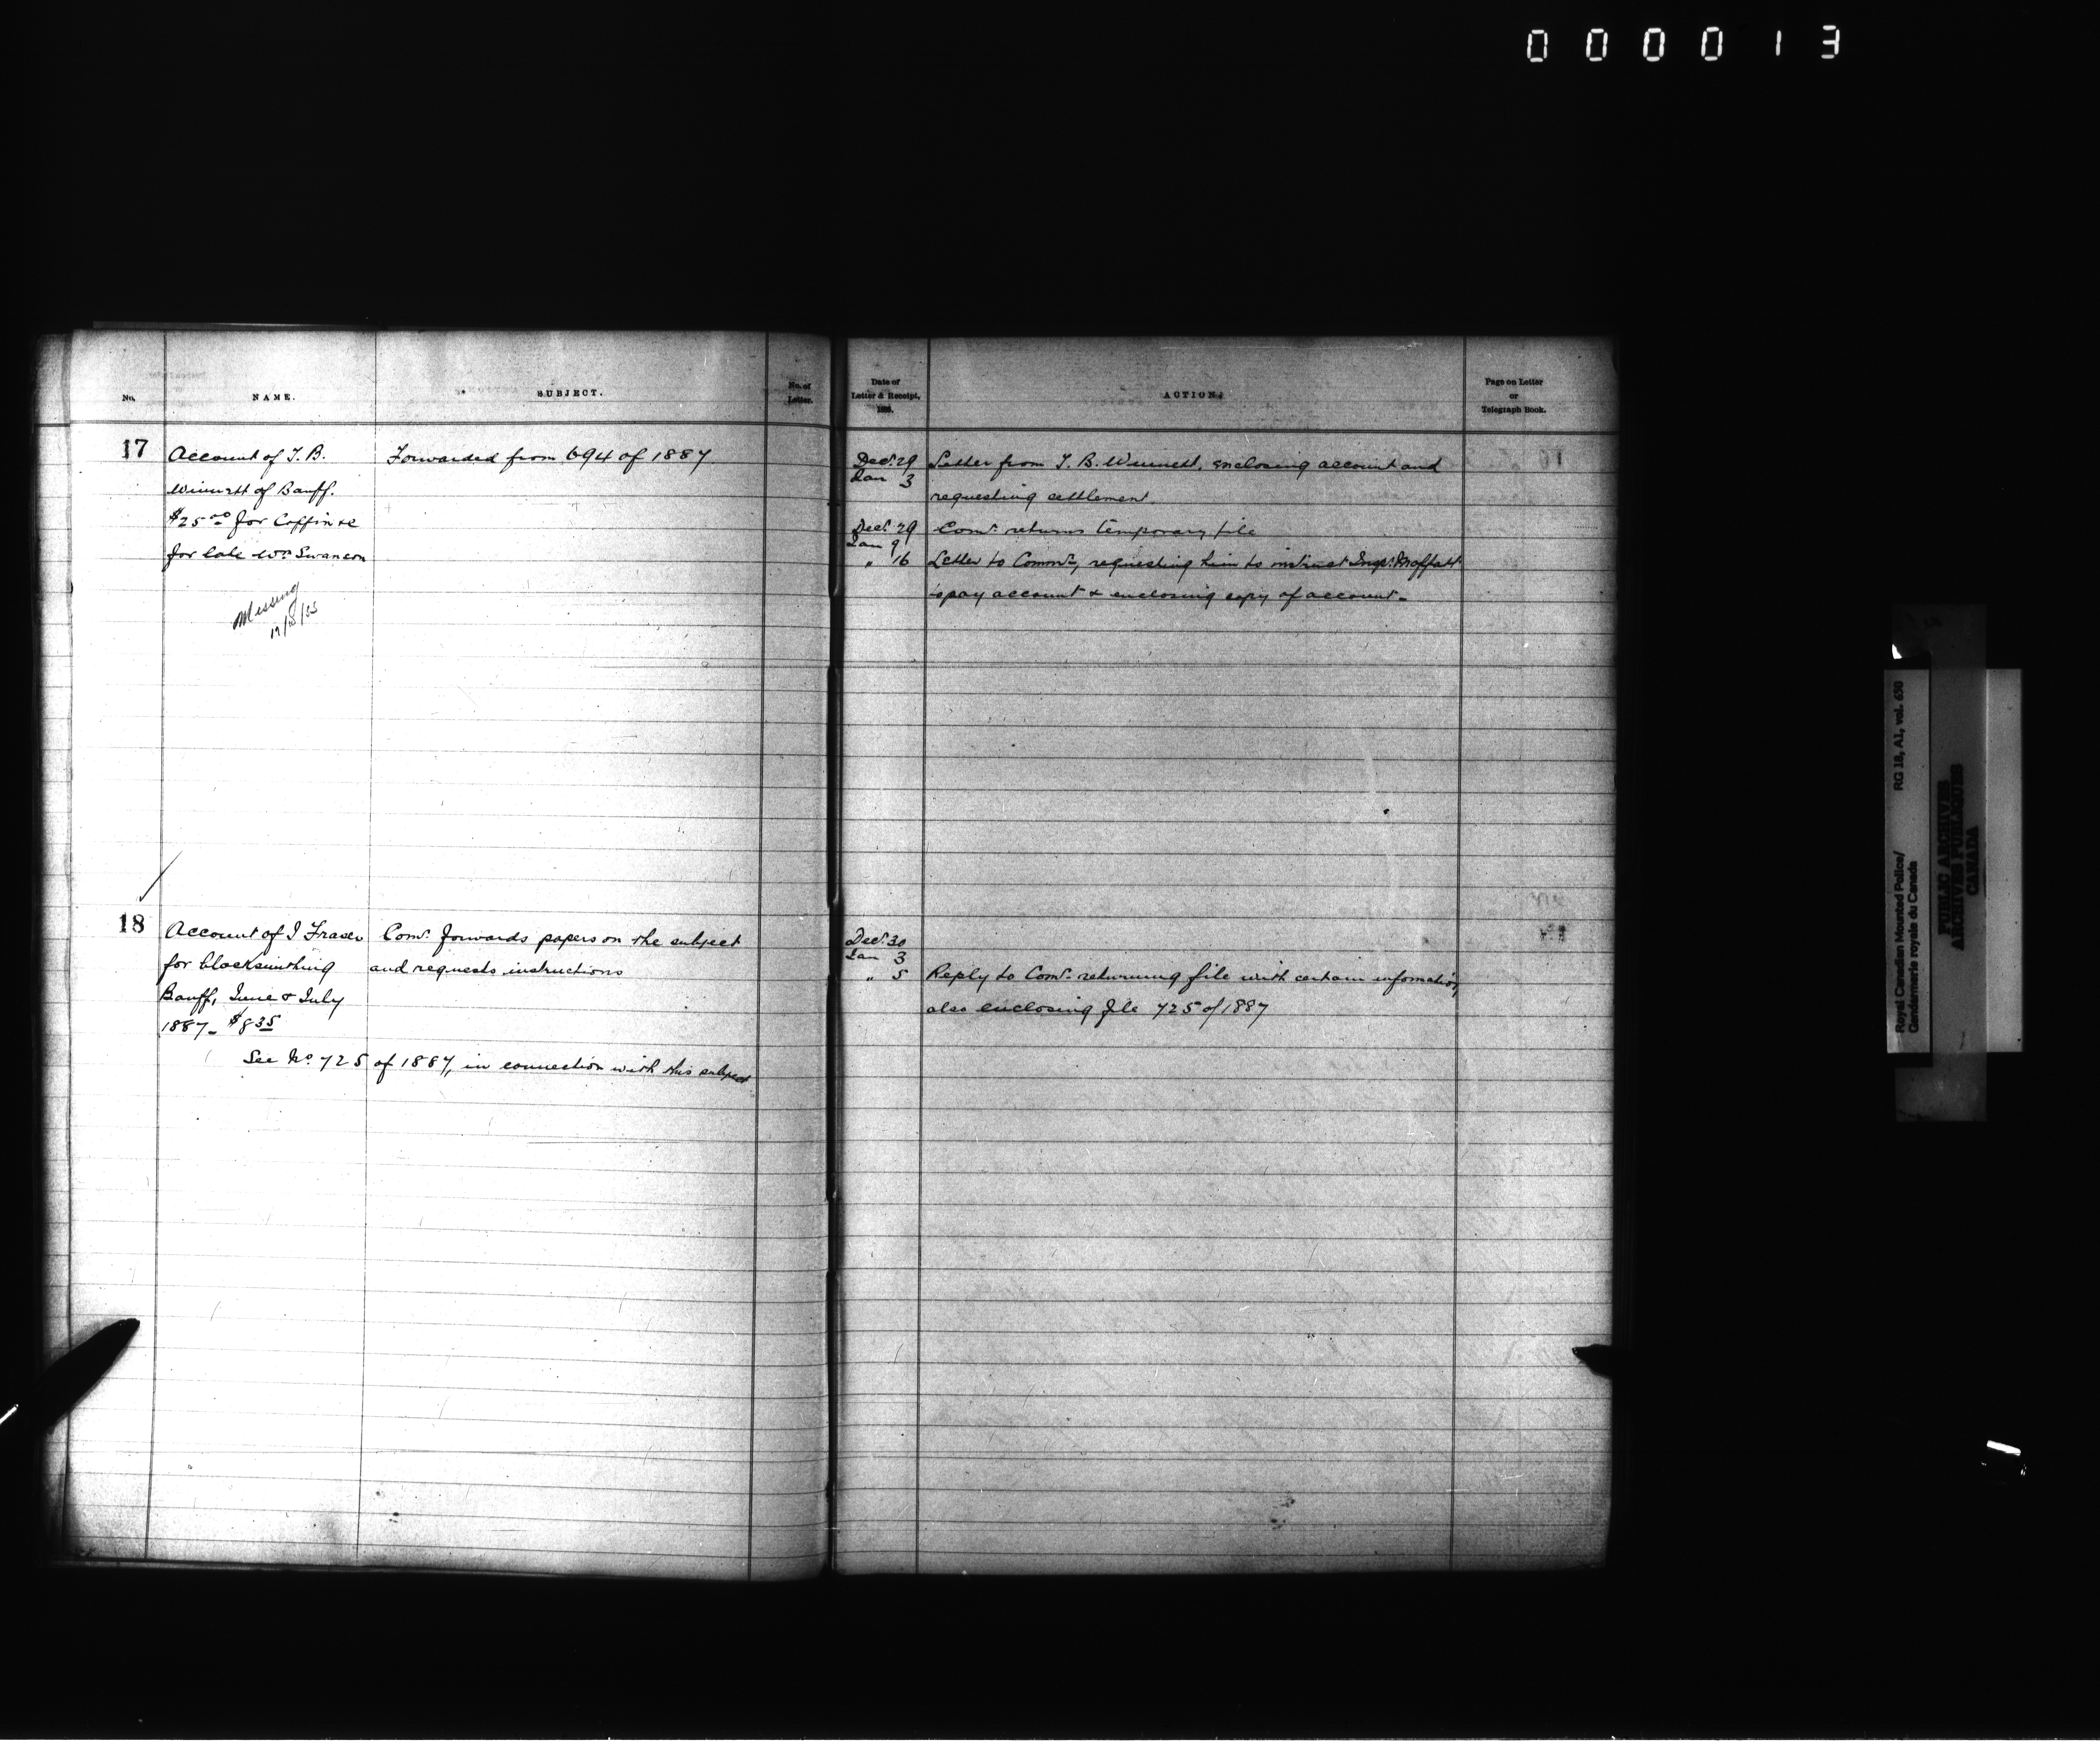 000013
No.
NAME.
SUBJECT.
No. of
Letter.
Date of
Letter & Receipt,
188
ACTION.
Page on Letter
or
Telegraph Book.
17
Account of T. B.
Winnett of Banff.
$25.00 for Coffin &c
for late Wm Swanson
Missing
Forwarded from 694 of 1887
Dec. 29
Jan 3
Letter from T. B. Winnett, enclosing account and
requesting settlement.
Dec. 29
Jan 9
Comr. returns temporary file
" 16
Letter to Commr, requesting him to instruct Insp. Moffatt
to pay account & enclosing copy of account.
18
Account of J Fraser
for blacksmithing
Banff, June & July
1887 - $8.35
See No. 725 of 1887, in connection with this subject
Comr. forwards papers on the subject
and requests instructions
Dec. 30
Jan 3
" 5
Reply to Comr. returning file with certain information,
also enclosing file 725 of 1887
Royal Canadian Mounted Police/
Gendarmerie royale du Canada
RG 18, A1, vol. 650
PUBLIC ARCHIVES
ARCHIVES PUBLIQUES
CANADA